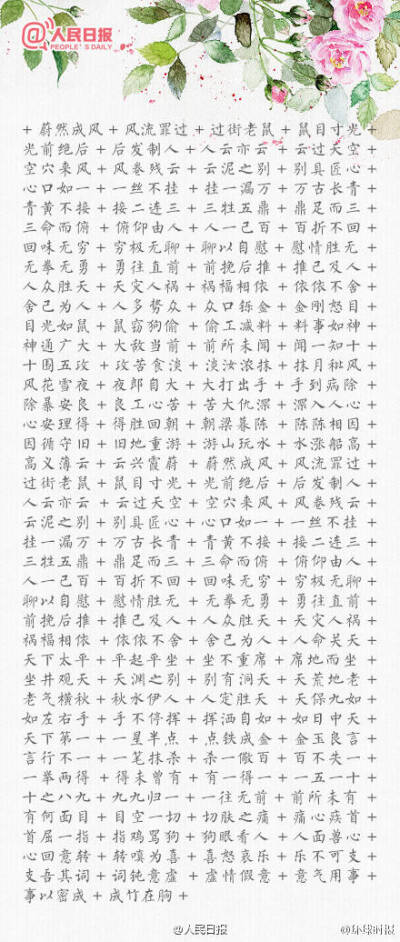 @人民日报
PEOPLE'S DAILY
+ 蔚然成风 + 风流罪过 + 过街老鼠 + 鼠目寸光 +
光前绝后 + 后发制人 + 人云亦云 + 云过天空 +
空穴来风 + 风卷残云 + 云泥之别 + 别具匠心 +
心口如一 + 一丝不挂 + 挂一漏万 + 万古长青 +
青黄不接 + 接二连三 + 三牲五鼎 + 鼎足而三 +
三命而俯 + 俯仰由人 + 人一己百 + 百折不回 +
回味无穷 + 穷极无聊 + 聊以自慰 + 慰情胜无 +
无拳无勇 + 勇往直前 + 前挽后推 + 推己及人 +
人众胜天 + 天灾人祸 + 祸福相依 + 依依不舍 +
舍己为人 + 人多势众 + 众口铄金 + 金刚怒目 +
目光如鼠 + 鼠窃狗偷 + 偷工减料 + 料事如神 +
神通广大 + 大敌当前 + 前所未闻 + 闻一知十 +
十围五攻 + 攻苦食淡 + 淡汝浓抹 + 抹月秕风 +
风花雪夜 + 夜郎自大 + 大打出手 + 手到病除 +
除暴安良 + 良工心苦 + 苦大仇深 + 深入人心 +
心安理得 + 得胜回朝 + 朝梁暮陈 + 陈陈相因 +
因循守旧 + 旧地重游 + 游山玩水 + 水涨船高 +
高义薄云 + 云兴霞蔚 + 蔚然成风 + 风流罪过 +
过街老鼠 + 鼠目寸光 + 光前绝后 + 后发制人 +
人云亦云 + 云过天空 + 空穴来风 + 风卷残云 +
云泥之别 + 别具匠心 + 心口如一 + 一丝不挂 +
挂一漏万 + 万古长青 + 青黄不接 + 接二连三 +
三牲五鼎 + 鼎足而三 + 三命而俯 + 俯仰由人 +
人一己百 + 百折不回 + 回味无穷 + 穷极无聊 +
聊以自慰 + 慰情胜无 + 无拳无勇 + 勇往直前 +
前挽后推 + 推己及人 + 人众胜天 + 天灾人祸 +
祸福相依 + 依依不舍 + 舍己为人 + 人命关天 +
天下太平 + 平起平坐 + 坐不重席 + 席地而坐 +
坐井观天 + 天渊之别 + 别有洞天 + 天荒地老 +
老气横秋 + 秋水伊人 + 人定胜天 + 天保九如 +
如左右手 + 手不停挥 + 挥洒自如 + 如日中天 +
天下第一 + 一星半点 + 点铁成金 + 金玉良言 +
言行不一 + 一笔抹杀 + 杀一儆百 + 百不失一 +
一举两得 + 得未曾有 + 有一得一 + 一五一十 +
十之八九 + 九九归一 + 一往无前 + 前所未有 +
有何面目 + 目空一切 + 切肤之痛 + 痛心疾首 +
首屈一指 + 指鸡骂狗 + 狗眼看人 + 人面兽心 +
心回意转 + 转嗔为喜 + 喜怒哀乐 + 乐不可支 +
支吾其词 + 词钝意虚 + 虚情假意 + 意气用事 +
事以密成 + 成竹在胸 +
@人民日报
@环球时报